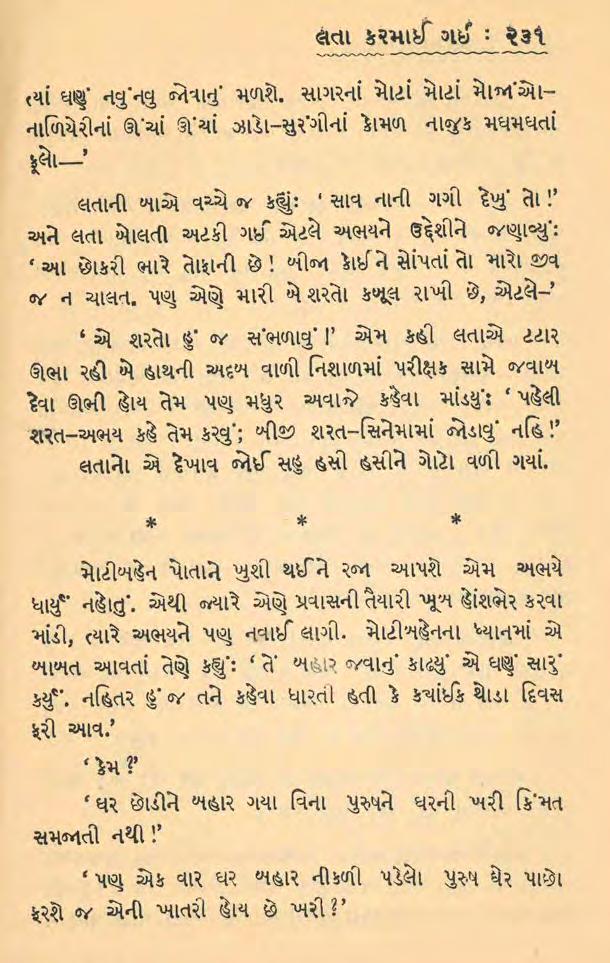 લતા કરમાઈ ગઈ : ૨૩૧
ત્યાં ઘણું નવુંનવુ જોવાનું મળશે. સાગરનાં મોટાં મોટાં મોજાંઓ–
નાળિયેરીનાં ઊંચાં ઊંચાં ઝાડો–સુરંગીનાં કોમળ નાજુક મઘમઘતાં
ફૂલો—’
લતાની બાએ વચ્ચે જ કહ્યું: ‘ સાવ નાની ગગી દેખું તો !’
અને લતા બોલતી અટકી ગઈ એટલે અભયને ઉદ્દેશીને જણાવ્યું:
‘ આ છોકરી ભારે તોફાની છે ! બીજા કોઈને સોંપતાં તો મારો જીવ
જ ન ચાલત. પણ એણે મારી બે શરતો કબૂલ રાખી છે, એટલે–’
‘ એ શરતો હું જ સંભળાવું !’ એમ કહી લતાએ ટટાર
ઊભા રહી બે હાથની અદબ વાળી નિશાળમાં પરીક્ષક સામે જવાબ
દેવા ઊભી હોય તેમ પણ મધુર અવાજે કહેવા માંડયું: ‘ પહેલી
શરત–અભય કહે તેમ કરવું; બીજી શરત–સિનેમામાં જોડાવું નહિ !’
લતાનો એ દેખાવ જોઈ સહુ હસી હસીને ગોટો વળી ગયાં.
* * *
મોટીબહેન પોતાને ખુશી થઈને રજા આપશે એમ અભયે
ધાર્યું નહોતું. એથી જ્યારે એણે પ્રવાસની તૈયારી ખૂબ હોંશભેર કરવા
માંડી, ત્યારે અભયને પણ નવાઈ લાગી. મોટીબહેનના ધ્યાનમાં એ
બાબત આવતાં તેણે કહ્યું: ‘ તેં બહાર જવાનું કાઢયું એ ઘણું સારું
કર્યું. નહિતર હું જ તને કહેવા ધારતી હતી કે કયાંઈક થોડા દિવસ
ફરી આવ.’
‘ કેમ ?’
‘ ઘર છોડીને બહાર ગયા વિના પુરુષને ઘરની ખરી કિંમત
સમજાતી નથી !’
‘ પણ એક વાર ઘર બહાર નીકળી પડેલો પુરુષ ઘેર પાછો
ફરશે જ એની ખાતરી હોય છે ખરી ?’